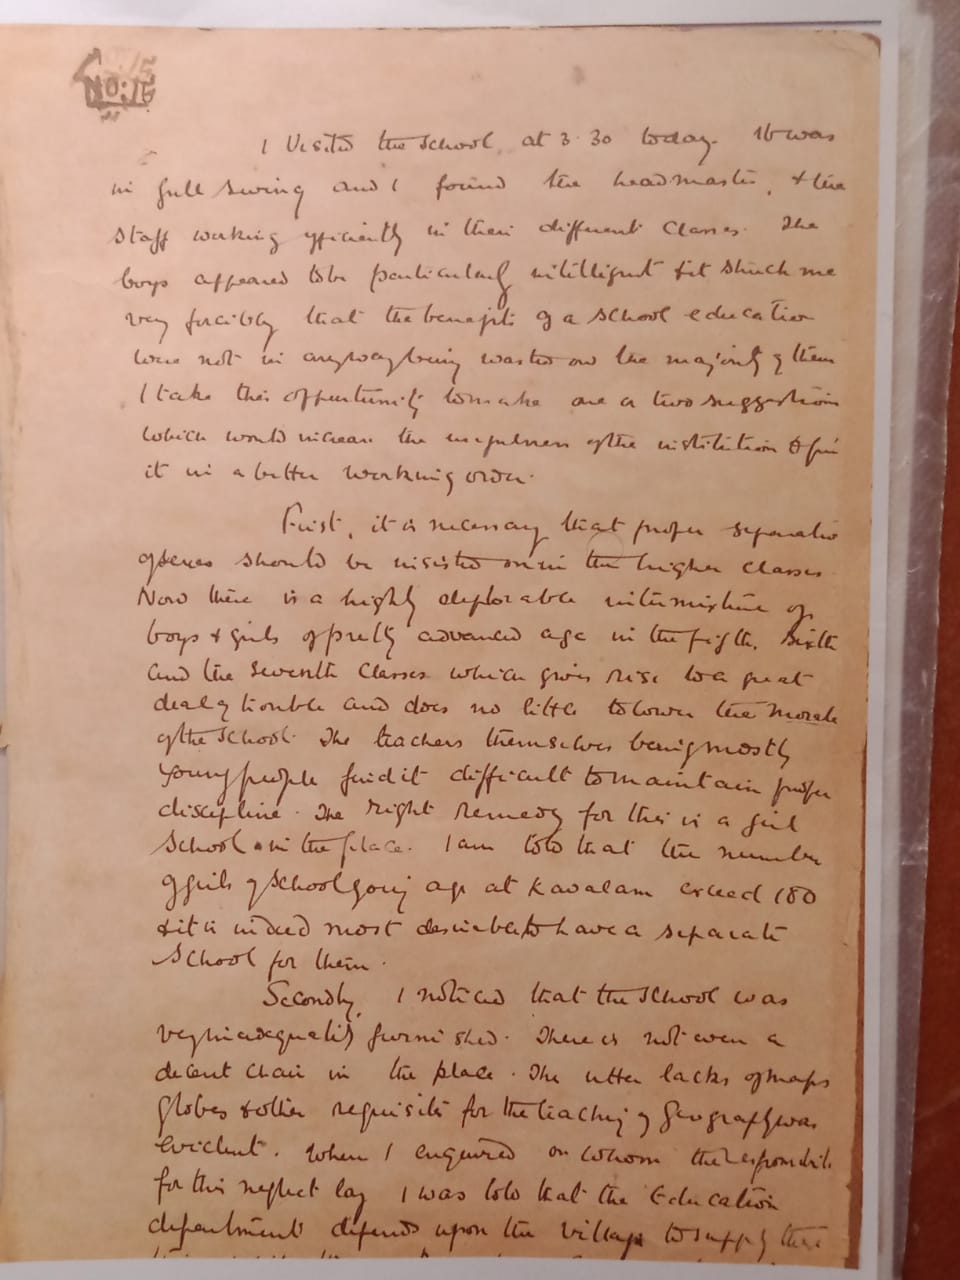 No: 15
I visited the school at 3.30 today. It was
in full swing and I found the headmaster, & the
staff working efficiently in their different classes. The
boys appeared to be particularly intelligent & it struck me
very forcibly that the benefits of a school education
were not in anyway being wasted on the majority of them
I take this opportunity to make one or two suggestions
which would increase the usefulness of the institution &
it in a better working order.
First, it is necessary that proper separation
of sexes should be insisted on in the higher classes.
Now there is a highly deplorable intermixture of
boys & girls of pretty advanced age in the fifth, sixth
and the seventh classes which gives rise to a great
deal of trouble and does no little to lower the morale
of the school. The teachers themselves being mostly
young people find it difficult to maintain proper
discipline. The right remedy for this is a girl
school in the place. I am told that the number
of girls of school going age at Kavalam exceed 180
& it is indeed most desirable to have a separate
school for them.
Secondly, I noticed that the school was
very inadequately furnished. There is not even a
decent chair in the place. The utter lacks of maps
globes & other requisites for the teaching of Geography was
evident. When I enquired on whom the responsibility
for this neglect lay I was told that the Education
department depends upon the village to supply these